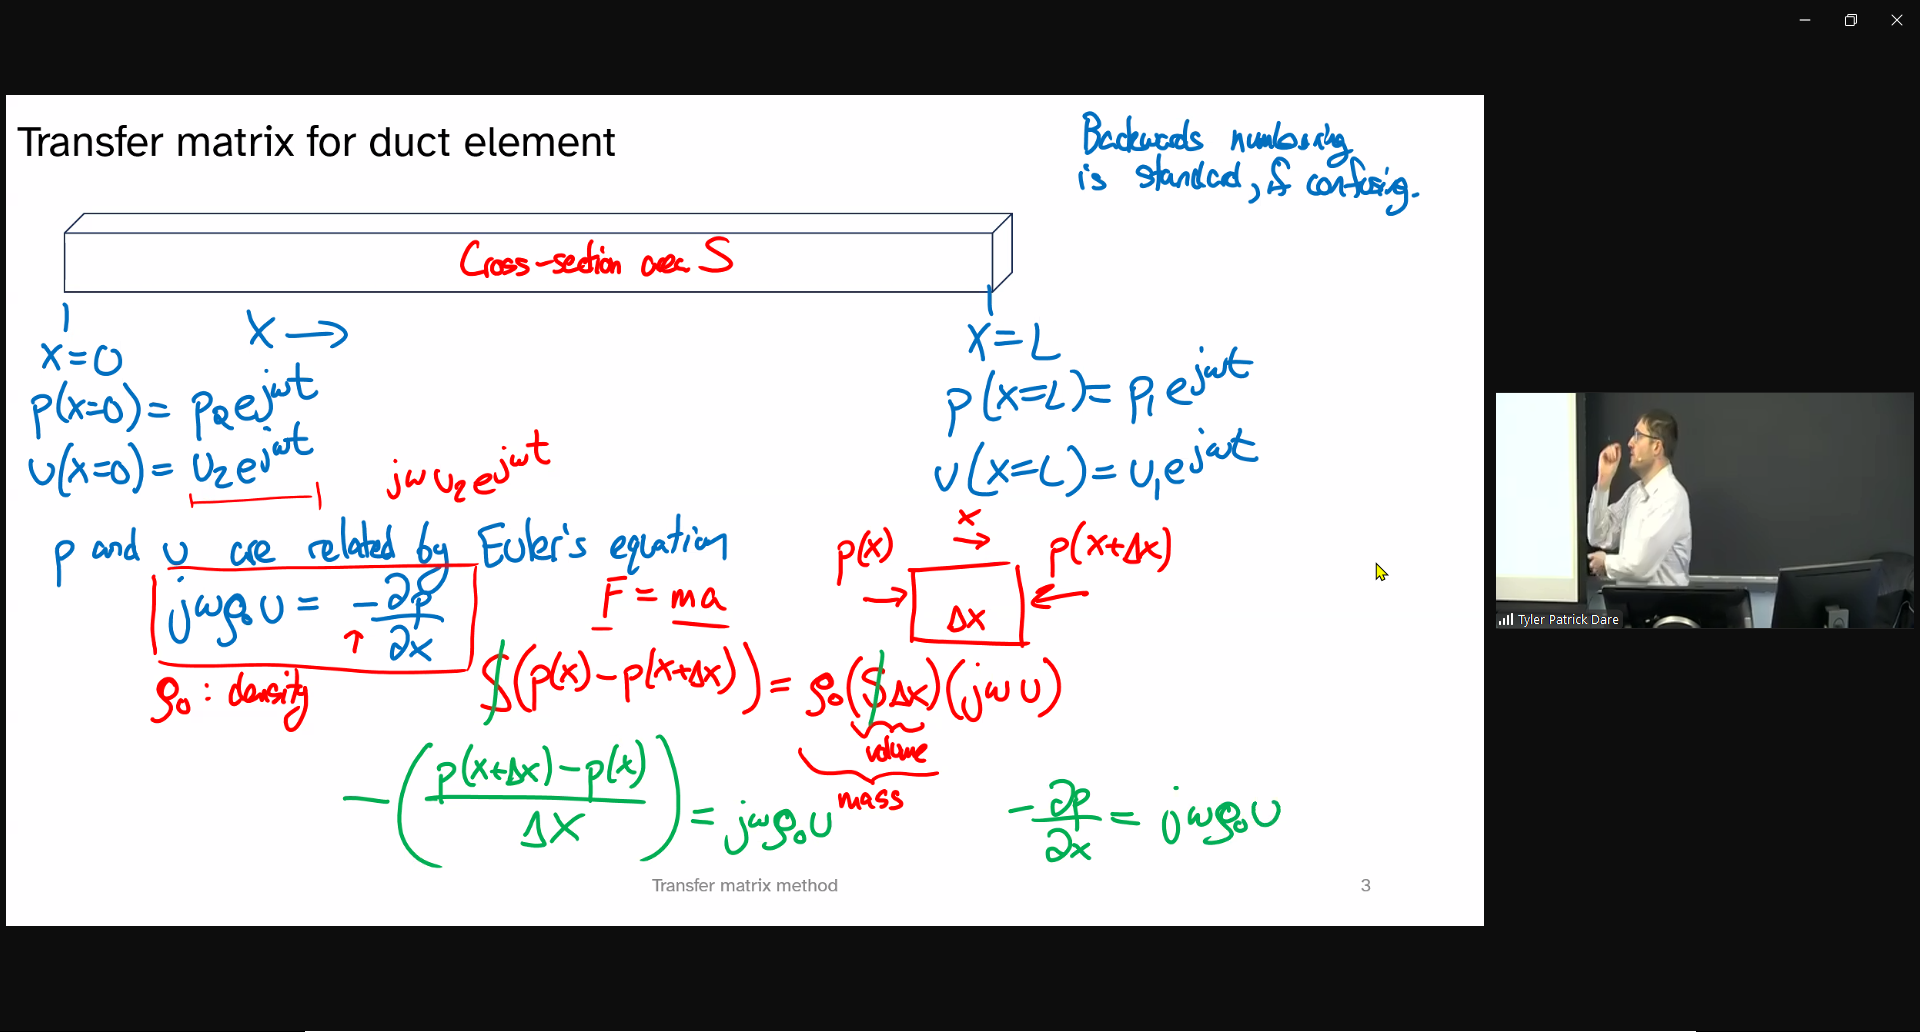 Transfer matrix for duct element
Backwards numbering
is standard, if confusing.
Cross-section area S
x=0
x →
x=L
p(x=0) = p₂e^{jωt}
p(x=L) = p₁e^{jωt}
u(x=0) = u₂e^{jωt}
jωu₂e^{jωt}
u(x=L) = u₁e^{jωt}
p and u are related by Euler's equation
jωρ₀u = -∂p/∂x
↑
ρ₀ : density
F = ma
x
→
p(x)
p(x+Δx)
→
Δx
←
S(p(x) - p(x+Δx)) = ρ₀(SΔx)(jωu)
volume
mass
-((p(x+Δx) - p(x))/Δx) = jωρ₀u
-∂p/∂x = jωρ₀u
Transfer matrix method
3
Tyler Patrick Dare